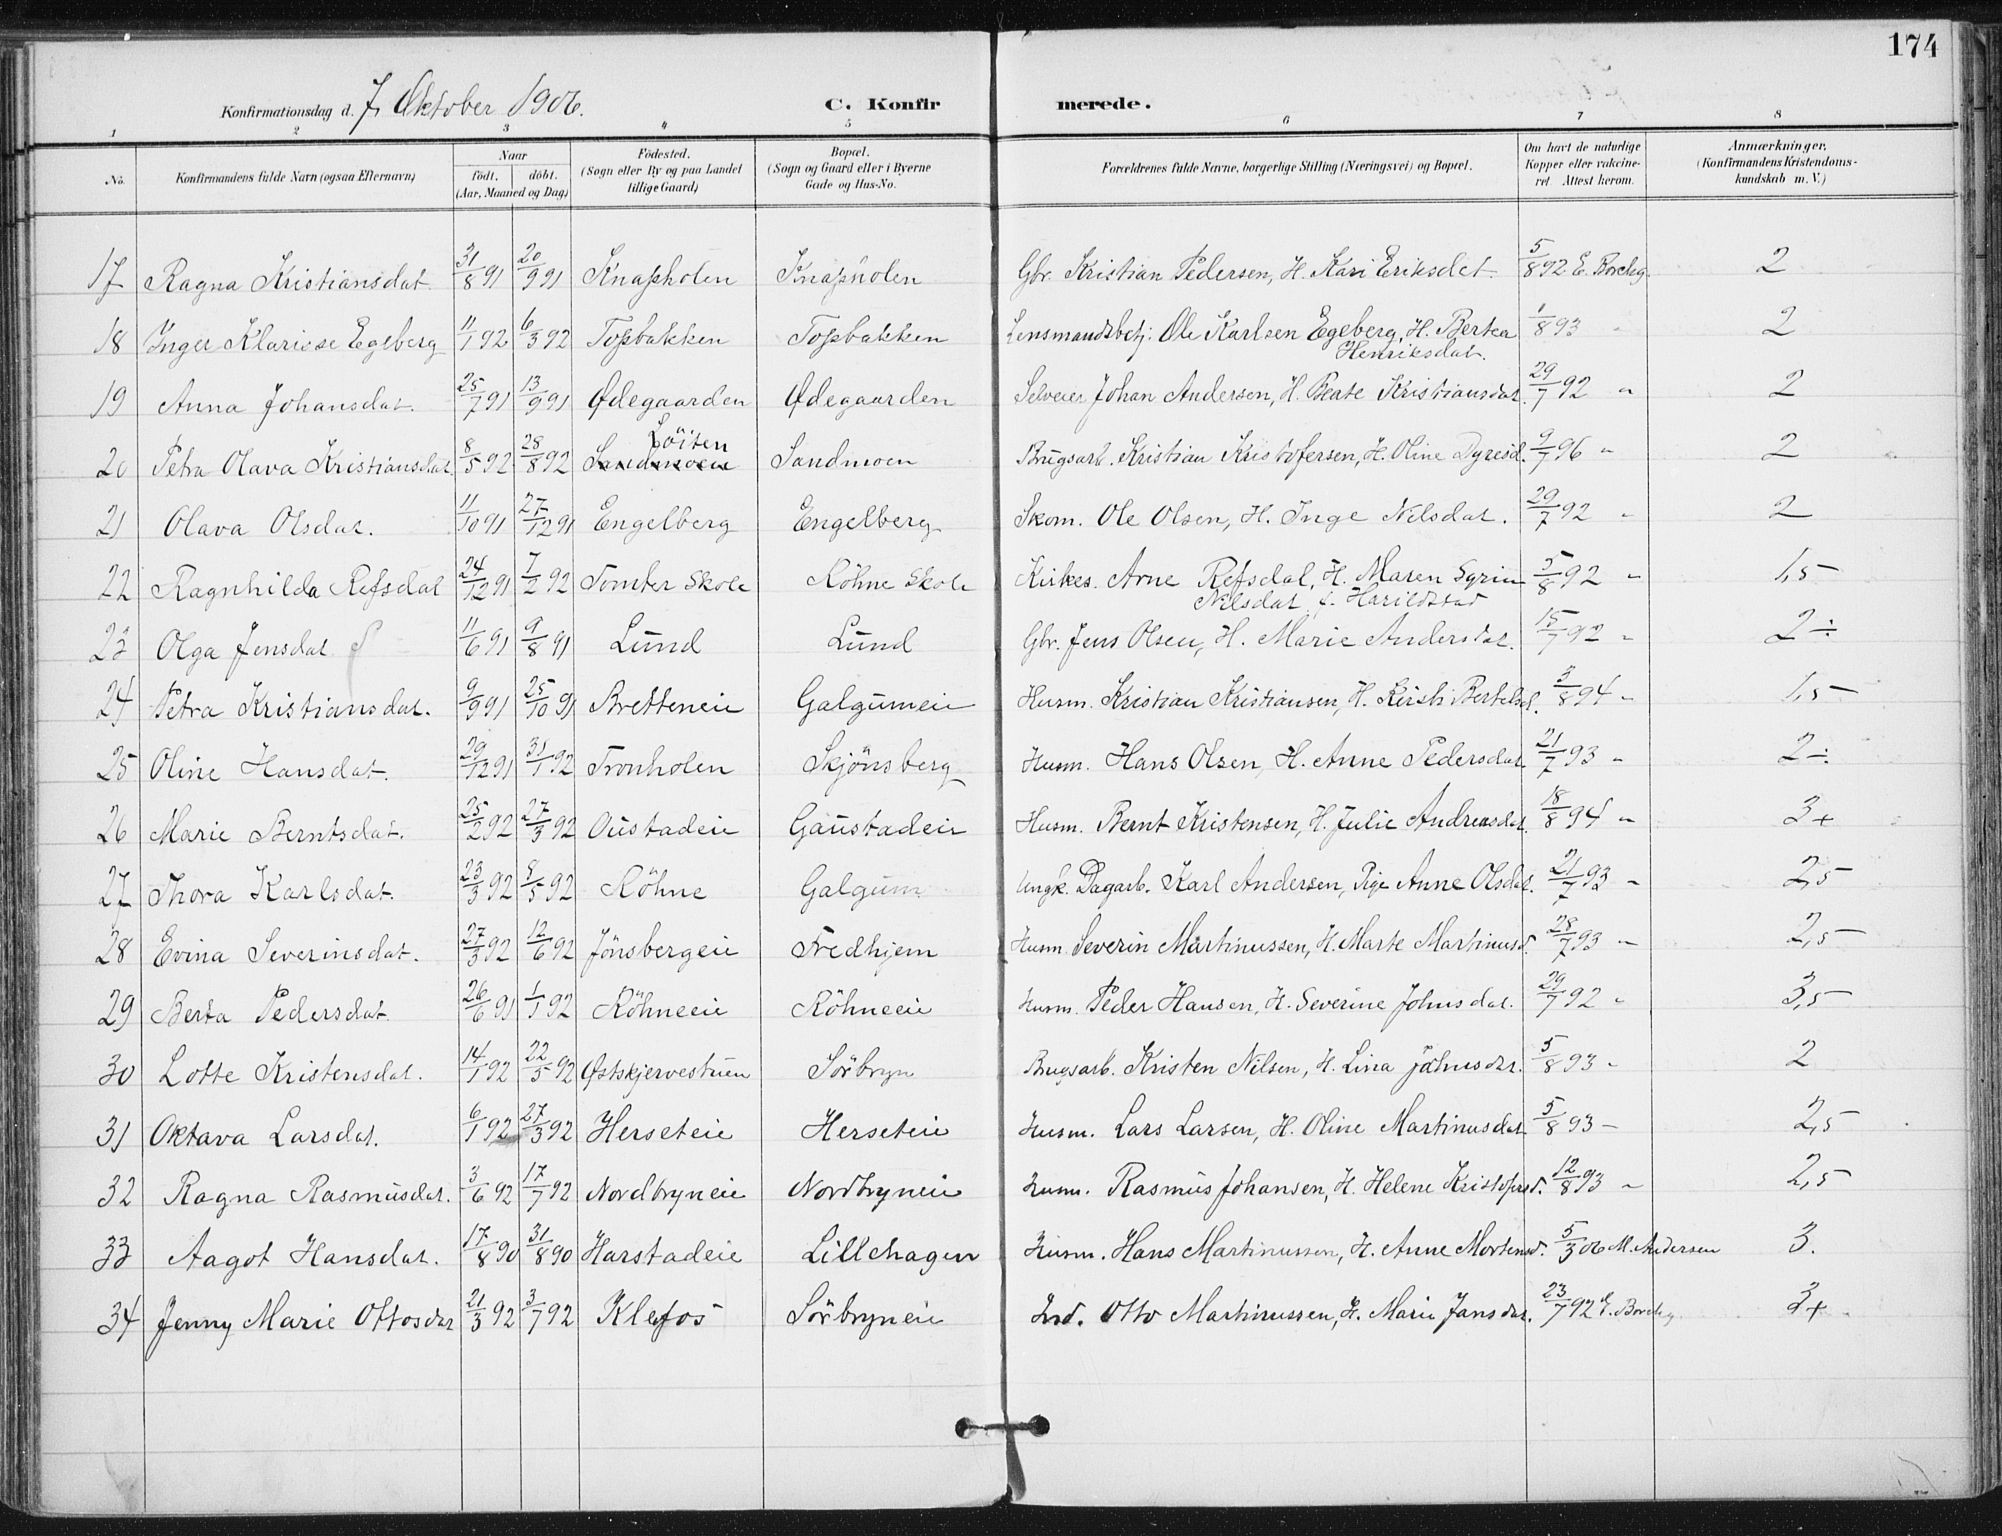 174
Konfirmationsdag d. 7. Oktober 1906. C. Konfirmerede.
1 2 3 4 5 6 7 8
No. Konfirmandens fulde Navn (ogsaa Efternavn) Naar født. døbt. (Aar, Maaned og Dag) Födested. (Sogn eller By og paa Landet tillige Gaard) Bopæl. (Sogn og Gaard eller i Byerne Gade og Hus-No. Forældrenes fulde Navne, borgerlige Stilling (Næringsvei) og Bopæl. Om havt de naturlige Kopper eller vakcineret. Attest herom. Anmærkninger, (Konfirmandens Kristendomskundskab m. V.)
17 Ragna Kristiansdat. 31/8 91 20/9 91 Knapholen Knapholen Gbr. Kristian Pedersen, H. Kari Eriksdat. 5/8 92 E. Borchg. 2
18 Inger Klarisse Egeberg 11/1 92 6/3 92 Topbakken Topbakken Lensmandsbetj: Ole Karlsen Egeberg, H. Bertea Henriksdat. 1/8 93 " 2
19 Anna Johansdat. 25/7 91 13/9 91 Ødegaarden Ødegaarden Selveier Johan Andersen, H. Beate Kristiansdat. 29/7 92 " 2
20 Petra Olava Kristiansdat. 8/5 92 28/8 92 Sandmoen Löiten Sandmoen Brugsarb. Kristian Kristofersen, H. Oline Dyresd. 9/7 96 " 2
21 Olava Olsdat. 11/10 91 27/12 91 Engelberg Engelberg Skom. Ole Olsen, H. Inge Nilsdat. 29/7 92 " 2
22 Ragnhilda Refsdal 24/12 91 7/2 92 Tomter Skole Röhne Skole Kirkes. Arne Refsdal, H. Maren Syrin Nilsdat f. Harildstad 5/8 92 " 1,5
23 Olga Jensdat 11/6 91 9/8 91 Lund Lund Gbr. Jens Olsen, H. Marie Andersdat. 15/7 92 " 2 ÷
24 Petra Kristiansdat. 9/9 91 25/10 91 Bretteneie Galgumeie Husm. Kristian Kristiansen, H. Kirsti Bertelsd. 3/8 94 " 1,5
25 Oline Hansdat. 29/12 91 31/1 92 Tronholen Skjönsberg Husm. Hans Olsen, H. Anne Pedersdat. 21/7 93 " 2 ÷
26 Marie Berntsdat. 25/2 92 27/3 92 Oustadeie Gaustadeie Husm. Bernt Kristensen, H. Julie Andreasdat. 18/8 94 " 3 +
27 Thora Karlsdat. 23/3 92 8/5 92 Röhne Galgum Ungk. Dagarb. Karl Andersen, Pige Anne Olsdat. 21/7 93 " 2,5
28 Evina Severinsdat. 27/3 92 12/6 92 Jönsbergeie Fredhjem Husm. Severin Martinussen, H. Marte Martinusd. 28/7 93 " 2,5
29 Berta Pedersdat. 26/6 91 1/1 92 Röhneeie Röhneeie Husm. Peder Hansen, H. Severine Johnsdat. 29/7 92 " 3,5
30 Lotte Kristensdat. 14/1 92 22/5 92 Østskjervestuen Sörbryn Brugsarb. Kristen Nilsen, H. Lina Johnsdat. 5/8 93 " 2
31 Oktava Larsdat. 6/1 92 27/3 92 Herseteie Herseteie Husm. Lars Larsen, H. Oline Martinusdat. 5/8 93 " 2,5
32 Ragna Rasmusdat. 3/6 92 17/7 92 Nordbryneie Nordbryneie Husm. Rasmus Johansen, H. Helene Kristofersd. 12/8 93 " 2,5
33 Aagot Hansdat. 17/8 90 31/8 90 Harstadeie Lillehagen Husm. Hans Martinussen, H. Anne Mortensd. 5/3 06 M. Andersen 3.
34 Jenny Marie Ottosdat 21/3 92 3/7 92 Klefos Sörbryneie Ind. Otto Martinussen, H. Marie Jansdat. 23/7 92 E. Borchg. 3 +